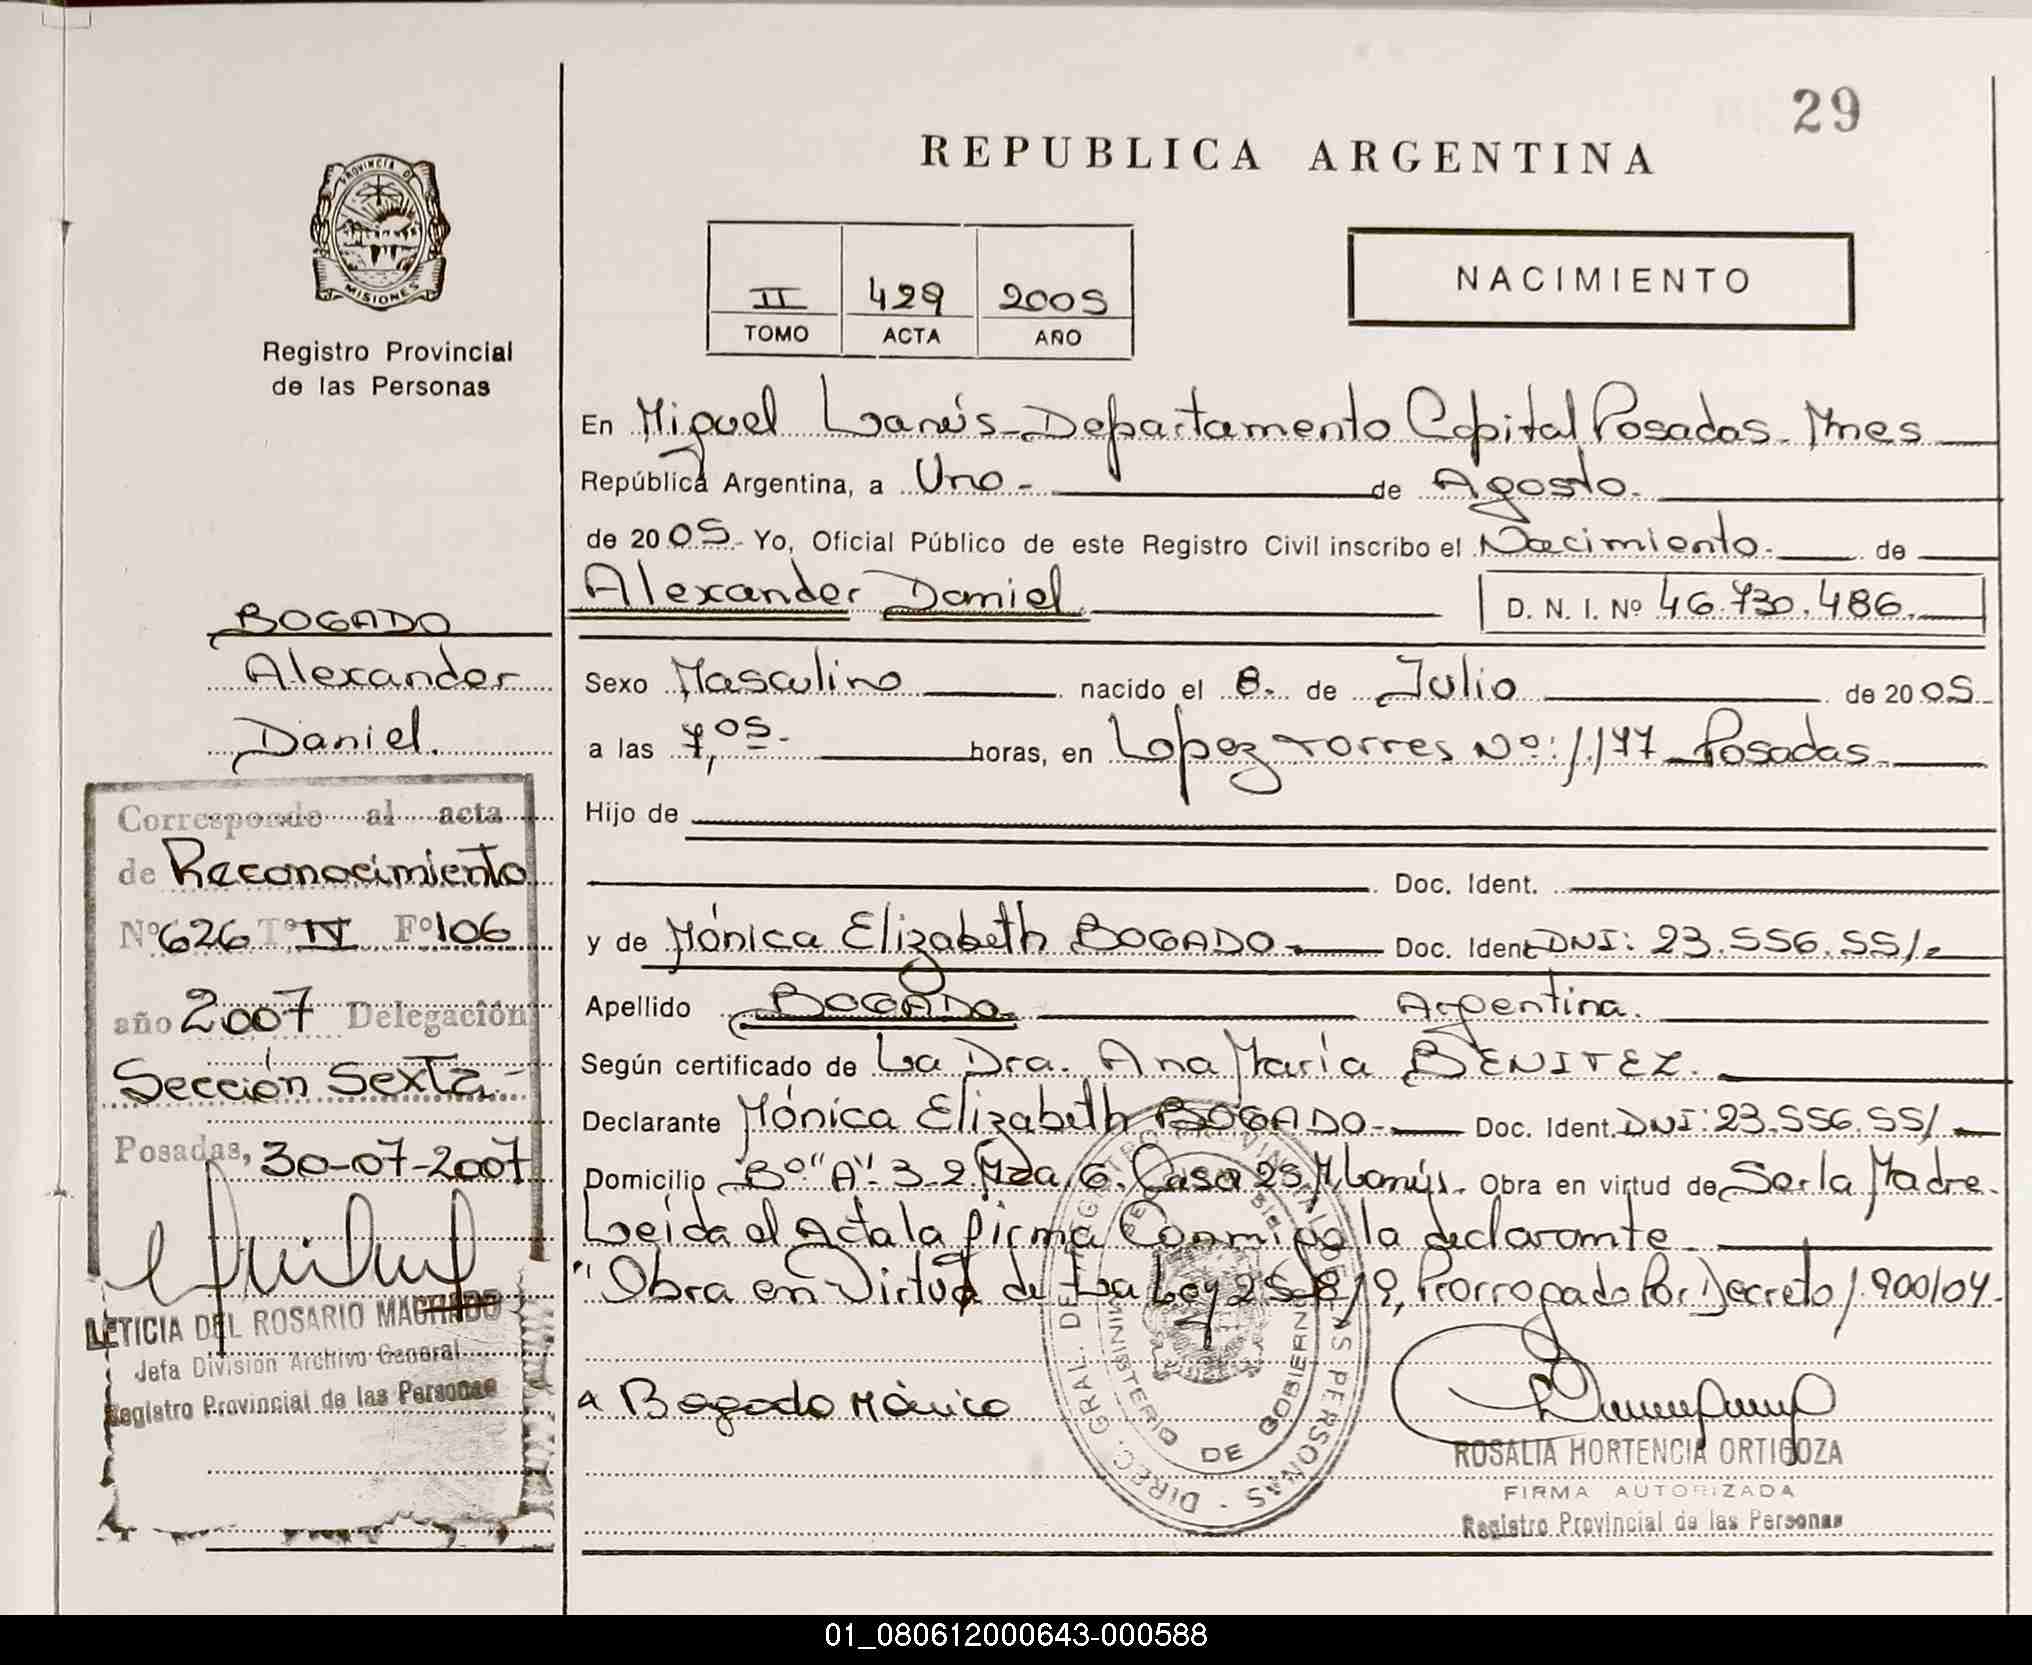 29
REPUBLICA ARGENTINA
PROVINCIA DE
MISIONES
Registro Provincial
de las Personas
II 429 2005
TOMO ACTA AÑO
NACIMIENTO
En Miguel Lanús - Departamento Capital Posadas - Mnes
República Argentina, a Uno - de Agosto.
de 2005 - Yo, Oficial Público de este Registro Civil inscribo el Nacimiento - de
Alexander Daniel D. N. I. Nº 46.730.486.
BOGADO
Alexander
Daniel.
Sexo Masculino nacido el 8. de Julio de 2005 -
a las 7,05 - horas, en Lopez Torres Nº: 1.177 - Posadas -
Hijo de
Doc. Ident.
y de Mónica Elizabeth BOGADO - Doc. Ident DNI: 23.556.551 -
Apellido BOGADO Argentina.
Según certificado de La Dra. Ana María BENITEZ.
Declarante Mónica Elizabeth BOGADO - Doc. Ident. DNI: 23.556.551 -
Domicilio Bº "A" - 3-2 Mza. 6. Casa 25 M. Lanús - Obra en virtud de Ser la Madre -
Leida el Acta la firma Conmigo la declarante
"Obra en Virtud de La Ley 25.819, Prorrogado Por Decreto 1.900/04 -
Bogado Mónica
Corresponde al acta
de Reconocimiento
Nº 626 Tº IV Fº 106
año 2007 Delegación
Sección Sexta -
Posadas, 30-07-2007
LETICIA DEL ROSARIO MACHADO
Jefa División Archivo General
Registro Provincial de las Personas
DIREC. GRAL. DE REGISTRO PROVINCIAL DE LAS PERSONAS -
MINISTERIO DE GOBIERNO
ROSALIA HORTENCIA ORTIGOZA
FIRMA AUTORIZADA
Registro Provincial de las Personas
01_080612000643-000588